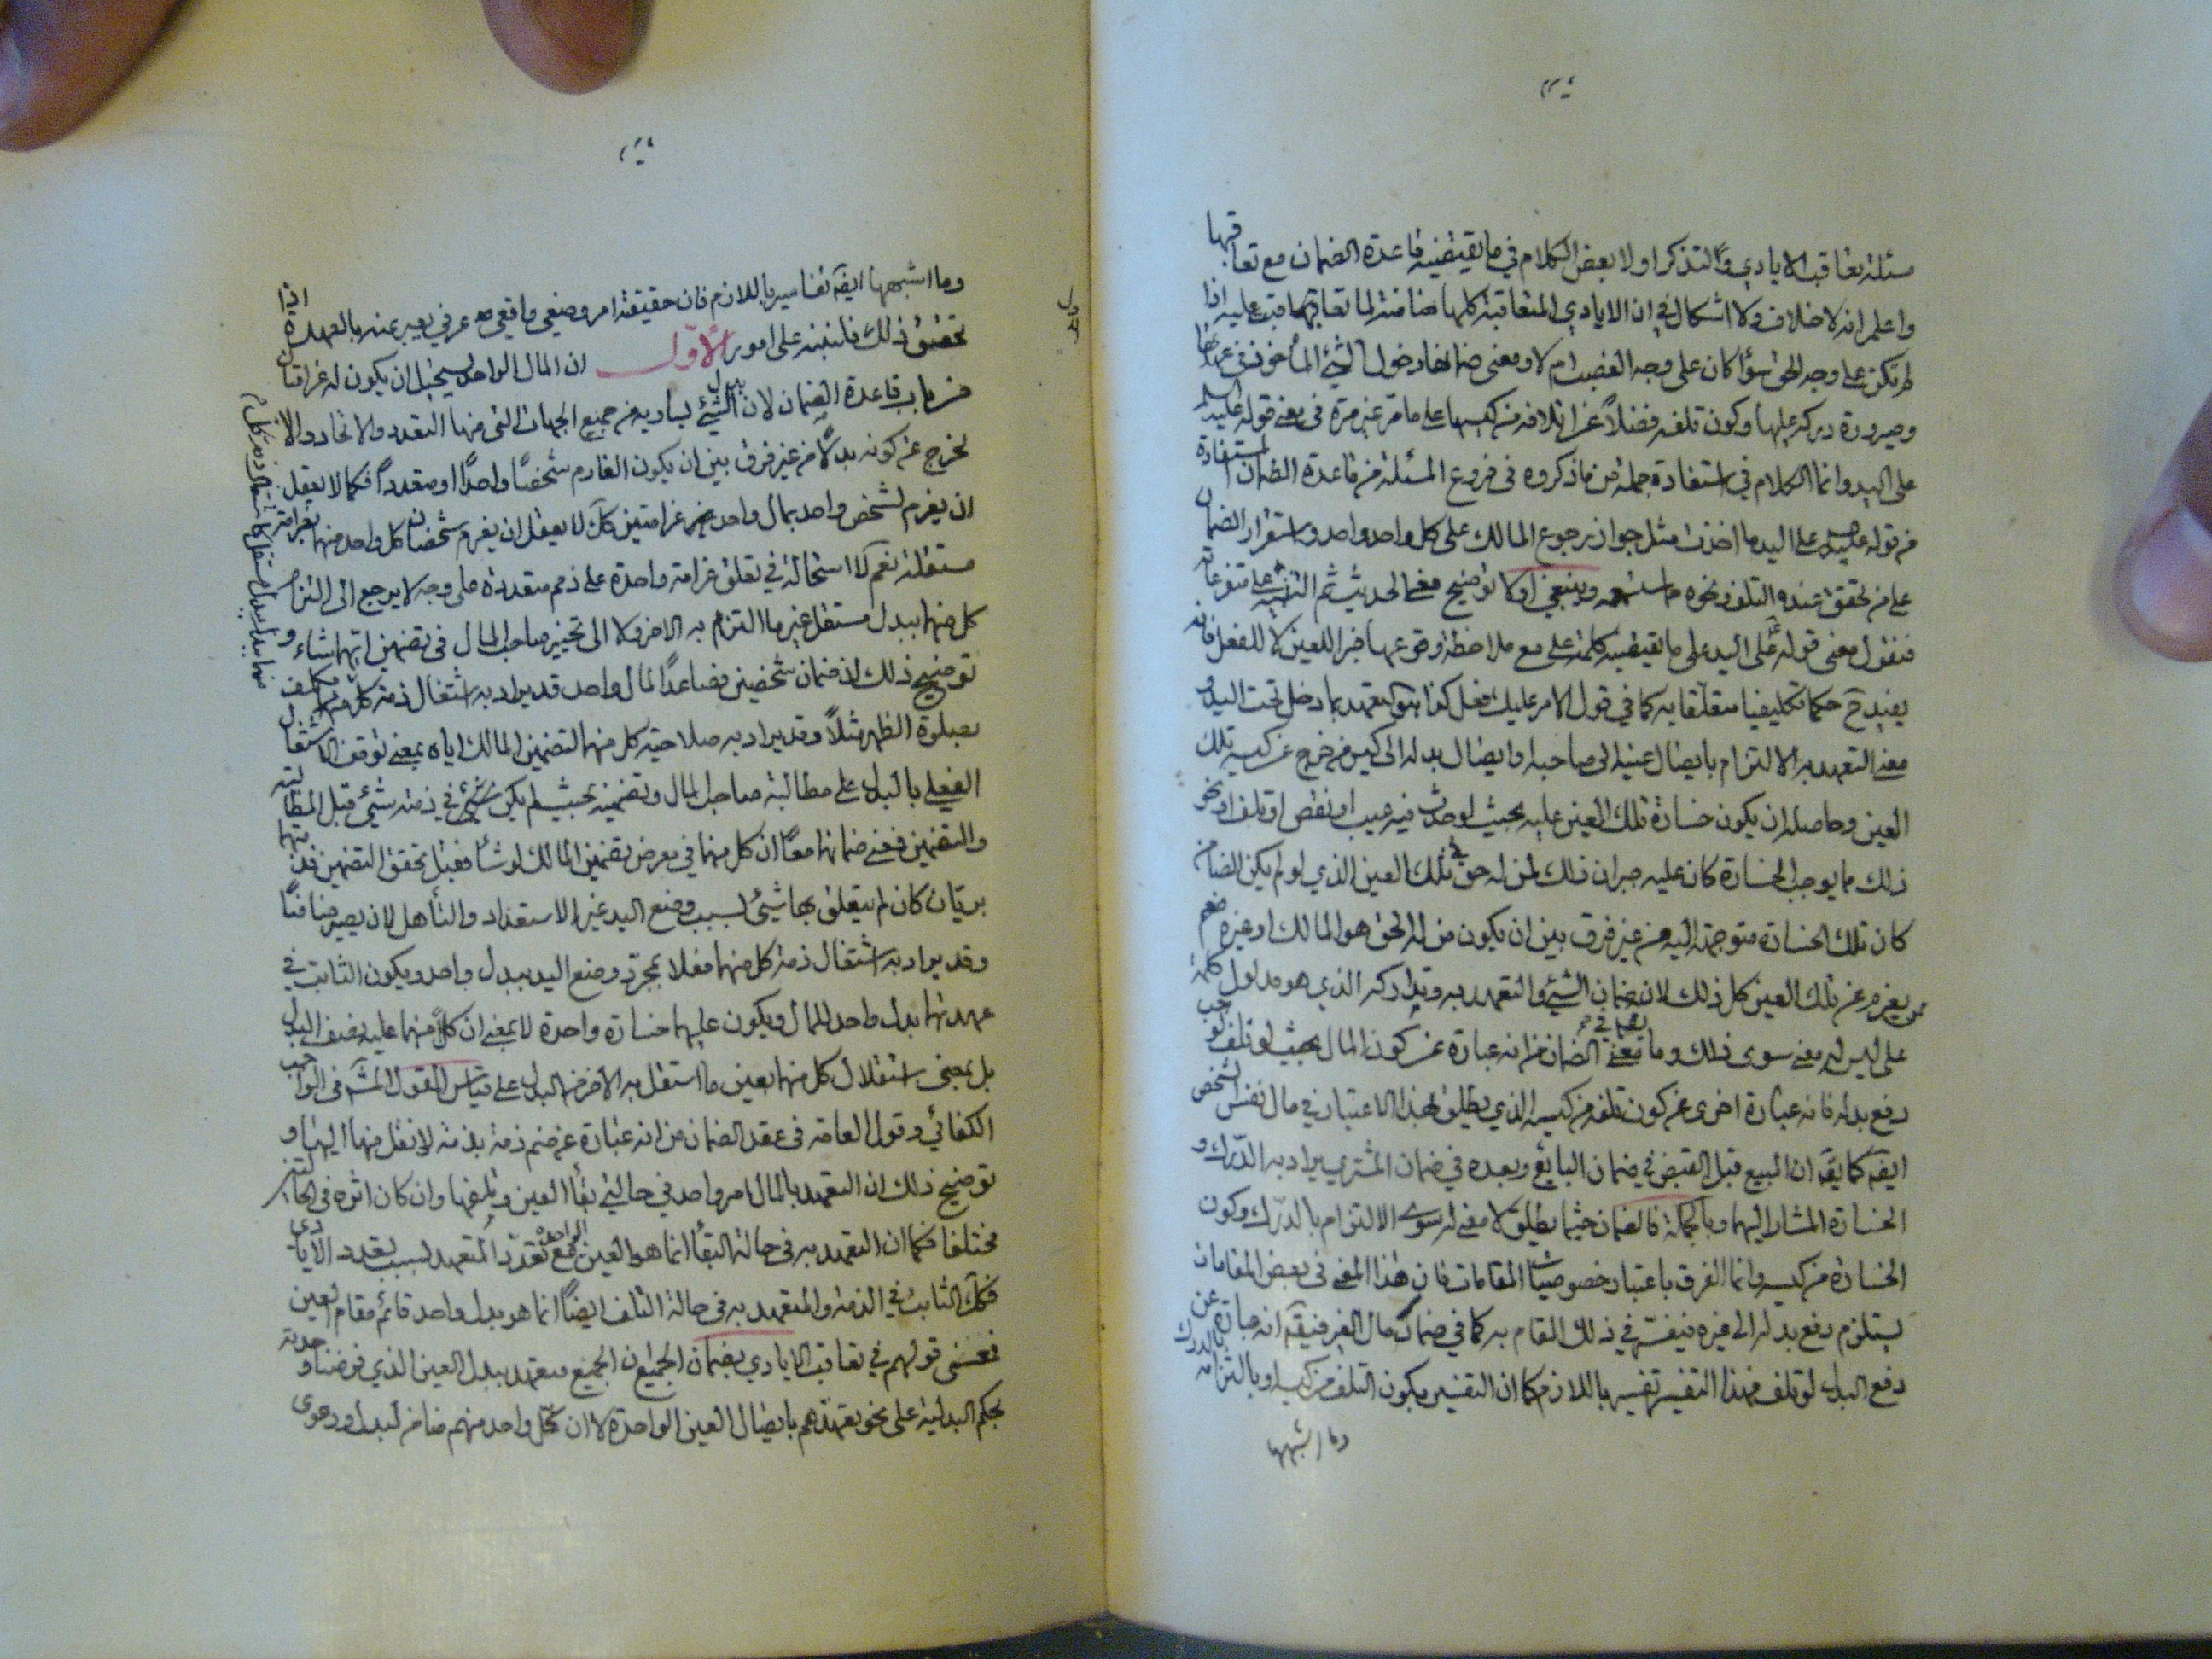 مسئلة تعاقب الايادي ولنذكر اولا بعض الكلام في ما يقتضيه قاعدة الضمان مع تعاقبها
واعلم انه لا خلاف ولا اشكال في ان الايادي المتعاقبة كلها ضامنة لما تعاقبها عليه اذا
لم تكن على وجه الحق سواء كان على وجه الغصب ام لا ومعنى ضمانها دخول الشئ المأخوذ في عهدتها
وصيرورة دركه عليها وكون تلفه فضلاً عن اتلافه من كيسها على ما مر غير مرة في معنى قوله عليه السلم
على اليد وانما الكلام في استفادة جملة من ما ذكروه في فروع المسئلة من قاعدة الضمان المستفادة
من قوله على اليد ما اخذت مثل جواز رجوع المالك على كل واحد واحد واستقرار الضمان
على من تحقق عنده التلف ونحوه وينبغي اولا توضيح معنى الحديث ثم التنبيه على متفرعاته
فنقول معنى قوله على اليد على ما يقتضيه كلمة على مع ملاحظة وقوعها خبرا للعين لا للفعل فانه
يفيد ح حكما تكليفيا متعلقا به كما في قول الامر عليك فعل كذا هو التعهد بما دخل تحت اليد و
معنى التعهد به الالتزام بايصال عينه الى صاحبه وايصال بدله الى كيس من خرج عن كيسه تلك
العين وحاصله ان يكون خسارة تلك العين عليه بحيث لو حدث فيه عيب او نقص او تلف او نحو
ذلك مما يوجب الخسارة كان عليه جبران ذلك لمن له حق في تلك العين الذي لو لم يكن الضامن
كان تلك الخسارة متوجهة اليه من غير فرق بين ان يكون من له الحق هو المالك او غيره
يغرم عن تلك العين كل ذلك لان ضمان الشئ والتعهد به وتدارکه الذي هو مدلول كلمة
على ليس له معنى سوى ذلك وما في معنى الضمان من انه عبارة عن كون المال بحيث لو تلف وجب
دفع بدله فانه عبارة اخرى عن كون تلفه من كيسه الذي يطلق بهذا الاعتبار في مال نفس الشخص
ايضه كما يقه ان المبيع قبل القبض في ضمان البايع وبعده في ضمان المشتري يراد به الدرك و
الخسارة المشار اليهما وبالجملة فالضمان حيثما يطلق لا معنى له سوى الالتزام بالدرك وكون
الخسارة من كيسه وانما الفرق باعتبار خصوصيات المقامات فان هذا المعنى في بعض المقامات
يستلزم دفع بدله الى غيره فيفسر في ذلك المقام به كما في ضمان مال الغير فيقه انه عبارة عن
دفع البدل لو تلف فهذا التفسير تفسير باللازم كما ان التفسير بكون التلف من كيسه او بالتزامه بالدرك
وما اشبهها
وما اشبهها ايضه تفاسير باللازم فان حقيقته امر وضعي واقعي عرفي يعبر عنه بالعهدة اذا
تحقق ذلك فلننبه على امور الأول ان المال الواحد يستحيل ان يكون له غرامتان
من باب قاعدة الضمان لان بدل الشئ يساويه من جميع الجهات التي منها التعدد والاتحاد والا
لخرج عن كونه بدلاً من غير فرق بين ان يكون الغارم شخصًا واحدًا او متعددًا فكما لا يعقل
ان يغرم لشخص واحد بمال واحد غرامتين كك لا يعقل ان يغرم شخصان كل واحد منهما بغرامة
مستقلة نعم لا استحالة في تعلق غرامة واحدة على ذمم متعددة على وجه لا يرجع الى التزام
كل منهما ببدل مستقل غير ما التزام به الاخر ولا الى تخيير صاحب المال في تضمين ايهما شاء و
توضيح ذلك ان ضمان شخصين فصاعدًا لمال واحد قد يراد به اشتغال ذمة كل منهما
بصلوة الظهر مثلاً وقد يراد به صلاحية كل منهما لتضمين المالك اياه بمعنى توقف الاشتغال
الفعلي بالبدل على مطالبة صاحب المال وتضمينه بحيث لم يكن في ذمته شئ قبل المطالبة
والتضمين فمعنى ضمانهما معًا ان كل منهما في معرض تضمين المالك لو شاء فقبل تحقق التضمين ذمتهما
بريتان كان لم يتعلق بها شئ بسبب وضع اليد غير الاستعداد والتأهل لان يصير ضامنًا
وقد يراد به اشتغال ذمة كل منهما فعلا بمجرد وضع اليد ببدل واحد ويكون الثابت في
عهدتهما بدل واحد للمال ويكون عليهما خسارة واحدة لا بمعنى ان كلاً منهما عليه نصف البدل
بل بمعنى استقلال كل منهما بعين ما استقل به الاخر من البدل على قياس القول المشه في الواجب
الكفائي وقول العامة في عقد الضمان من انه عبارة عن ضم ذمة بذمة لا نقل منها اليها و
توضيح ذلك ان التعهد بالمال امر واحد في حالتي بقاء العين وتلفها وان كان اثره في الحالتين
مختلفا فكما ان التعهد به في حالة البقاء انما هو العين الواحدة مع تعدد المتعهد بسبب تعدد الايادي
فكك الثابت في الذمة والمتعهد به في حالة التلف ايضًا انما هو بدل واحد قائم مقام العين
فمعنى قولهم في تعاقب الايادي بضمان الجميع ان الجميع متعهد ببدل العين الذي فرضنا وحدته
بحكم البدلية على نحو تعهدهم بايصال العين الواحدة لا ان كل واحد منهم ضامن لبدل ودعوى